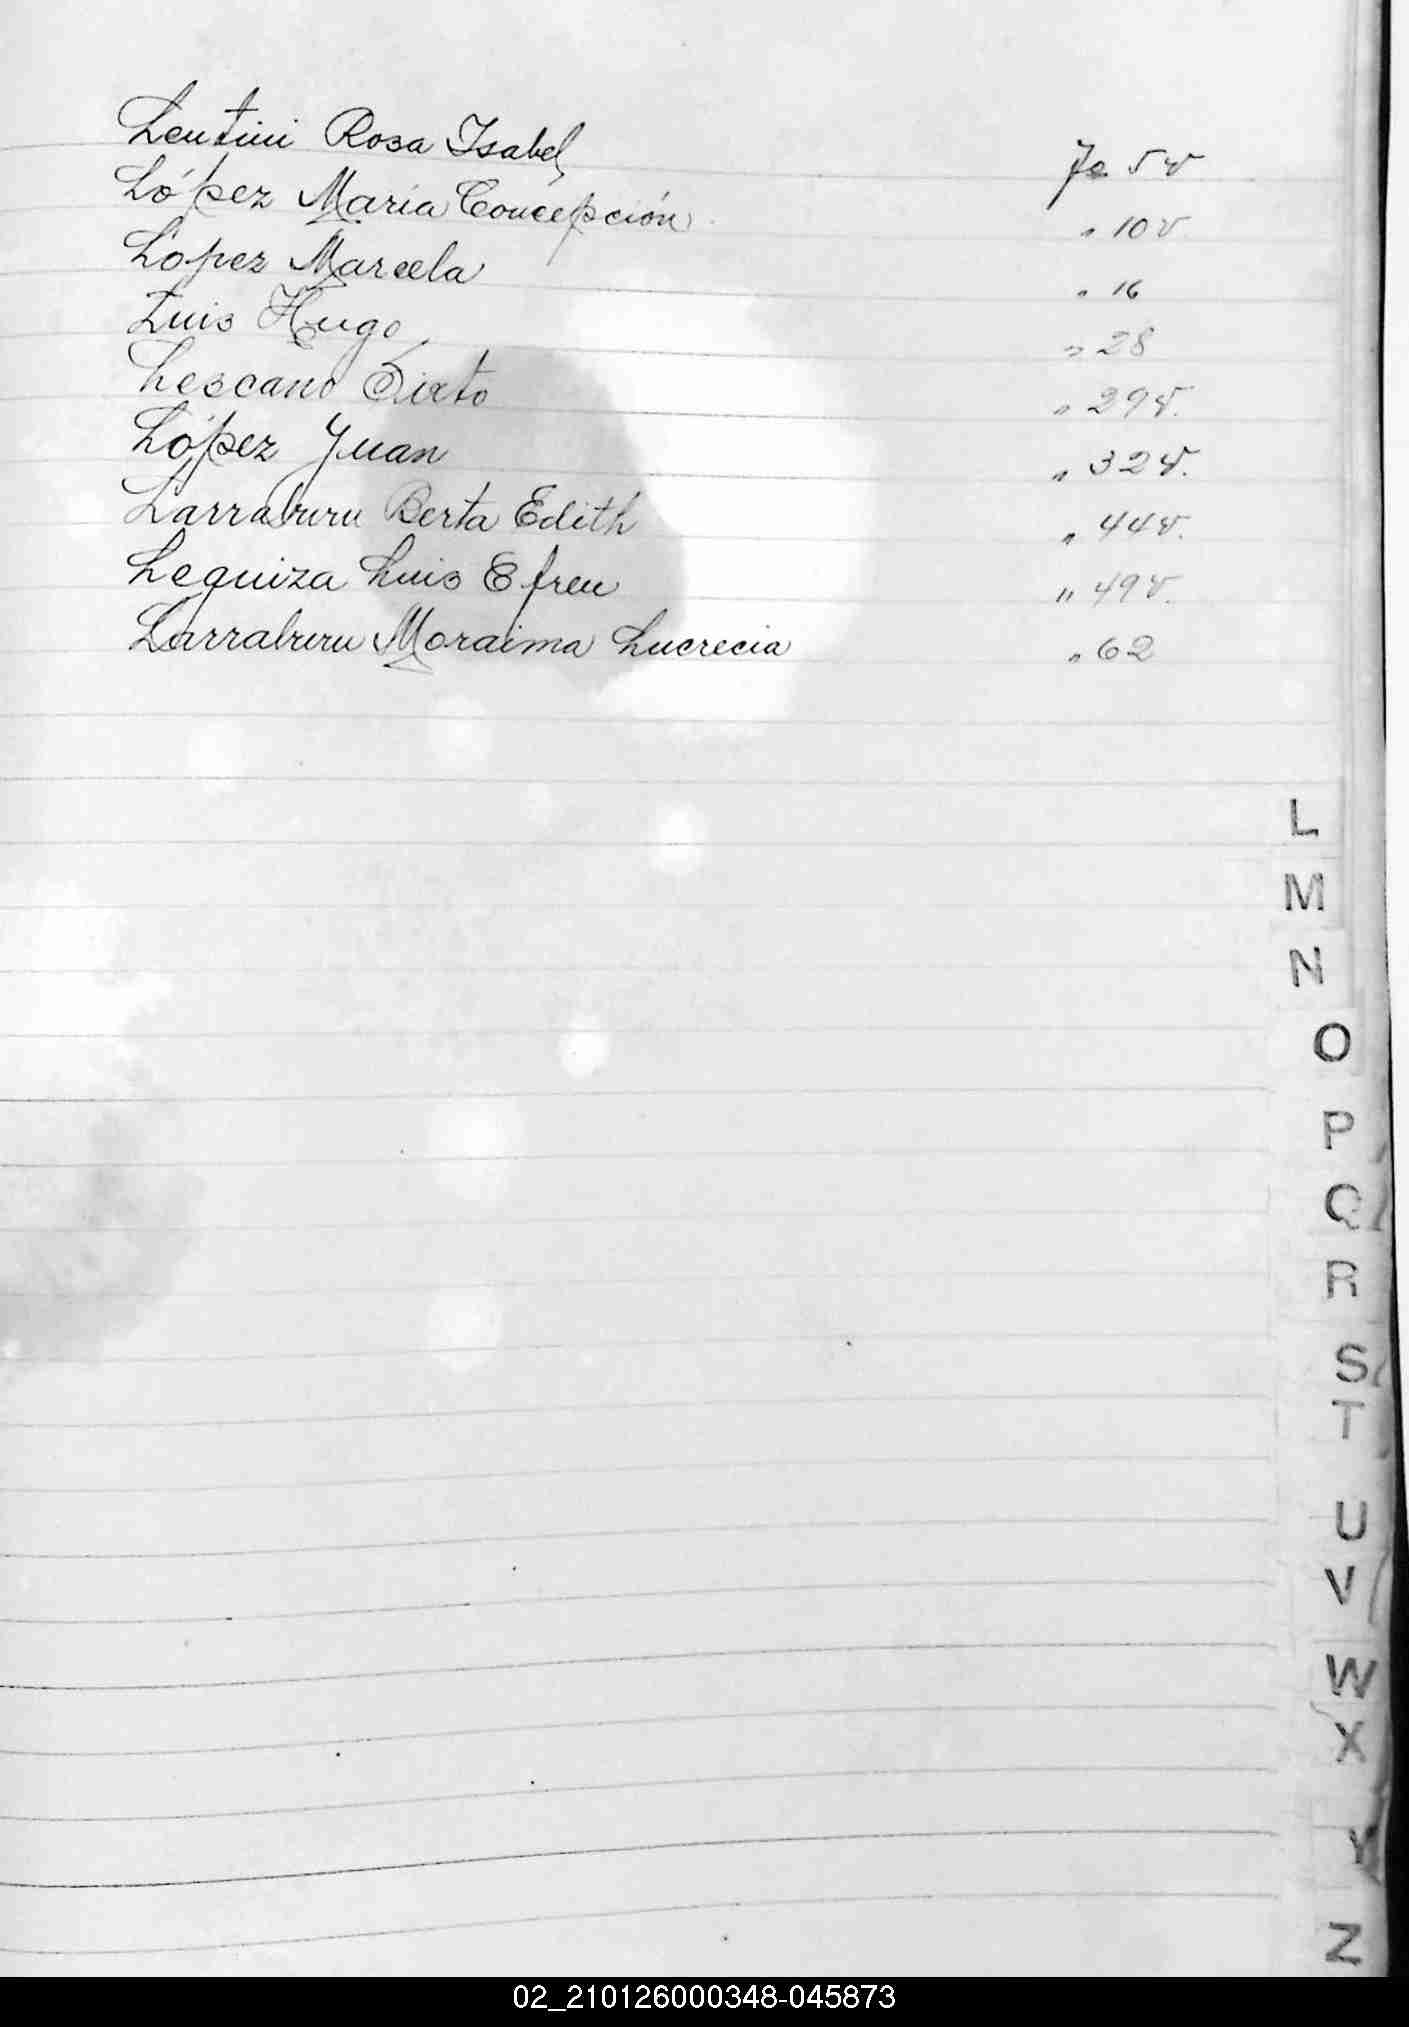 Lentini Rosa Isabel Fo 5 v
López María Concepción " 10 v.
López Marcela " 16
Luis Hugo " 28
Lescano Sixto " 29 v.
López Juan " 32 v.
Larraburu Berta Edith " 44 v.
Leguiza Luis Efren " 49 v.
Larraburu Moraima Lucrecia " 62
L
M
N
O
P
Q
R
S
T
U
V
W
X
Y
Z
02_210126000348-045873